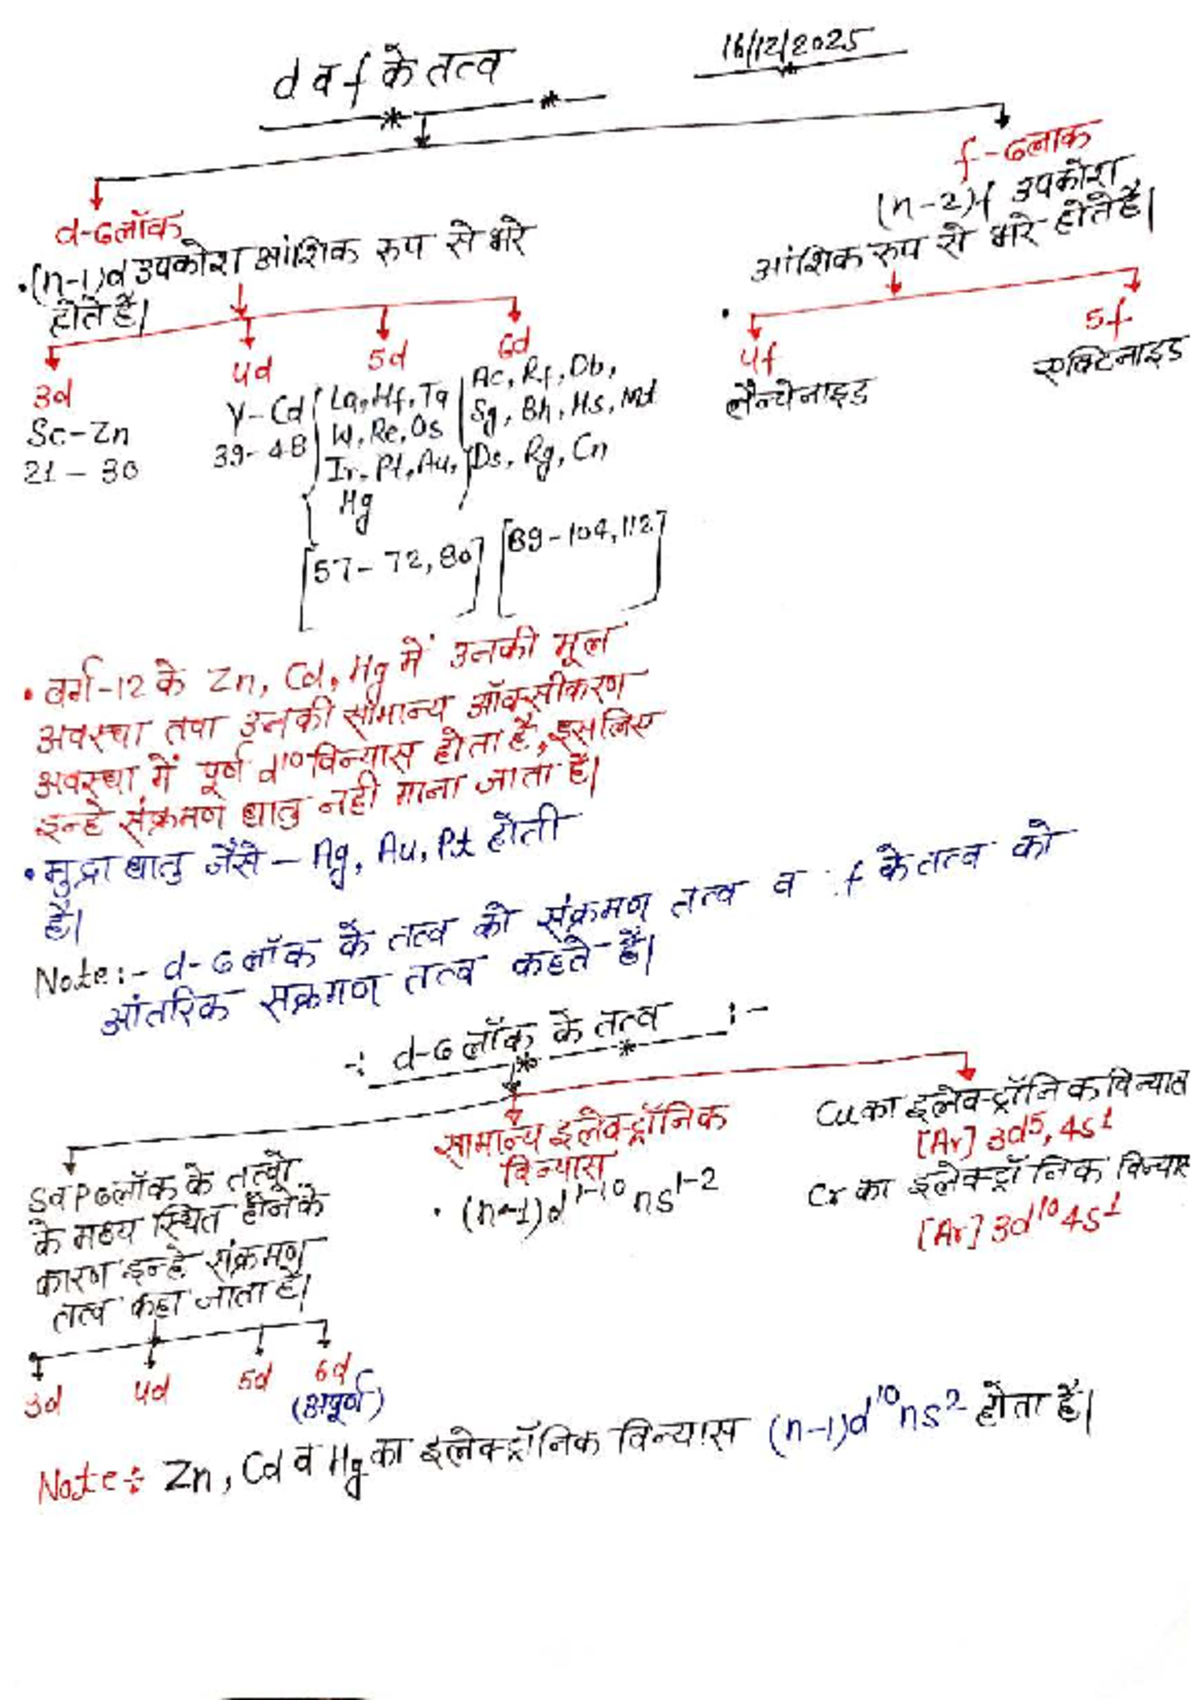 16/12/2025
d व f के तत्व
d-ब्लॉक
•(n-1)d उपकोश आंशिक रुप से भरे
होते है।
f-ब्लाक
(n-2)f उपकोश
आंशिक रुप से भरे होते है।
3d
Sc-Zn
21-30
4d
Y-Cd
39-48
5d
La, Hf, Ta
W, Re, Os
Ir, Pt, Au,
Hg
[57-72,80]
6d
Ac, Rf, Db,
Sg, Bh, Hs, Mt
Ds, Rg, Cn
[89-104,112]
4f
लैन्थेनाइड
5f
एक्टिनाइड
• वर्ग-12 के Zn, Cd, Hg में उनकी मूल
अवस्था तथा उनकी सामान्य ऑक्सीकरण
अवस्था में पूर्ण d¹⁰ विन्यास होता है, इसलिए
इन्हे संक्रमण धातु नही माना जाता है।
• मुद्रा धातु जैसे - Ag, Au, Pt होती
है।
Note:- d-ब्लॉक के तत्व को संक्रमण तत्व व f के तत्व को
आंतरिक सक्रमण तत्व कहते है।
-: d-ब्लॉक के तत्व :-
S व P ब्लॉक के तत्वो
के मध्य स्थित होने के
कारण इन्हे संक्रमण
तत्व कहा जाता है।
3d 4d 5d 6d
(अपूर्ण)
सामान्य इलेक्ट्रॉनिक
विन्यास
• (n-1)d¹⁻¹⁰ ns¹⁻²
Cu का इलेक्ट्रॉनिक विन्यास
[Ar] 3d⁵, 4s¹
Cr का इलेक्ट्रॉनिक विन्यास
[Ar] 3d¹⁰ 4s¹
Note ÷ Zn, Cd व Hg का इलेक्ट्रॉनिक विन्यास (n-1)d¹⁰ns² होता है।